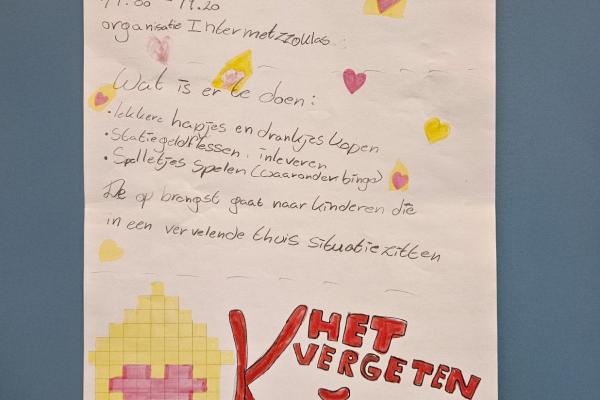 organisatie Intermetzzoklas
Wat is er te doen:
• lekkere hapjes en drankjes kopen
• Statiegeldflessen inleveren
• Spelletjes spelen (waaronder bingo)
De op brengst gaat naar kinderen die
in een vervelende thuis situatie zitten
HET
VERGETEN
K